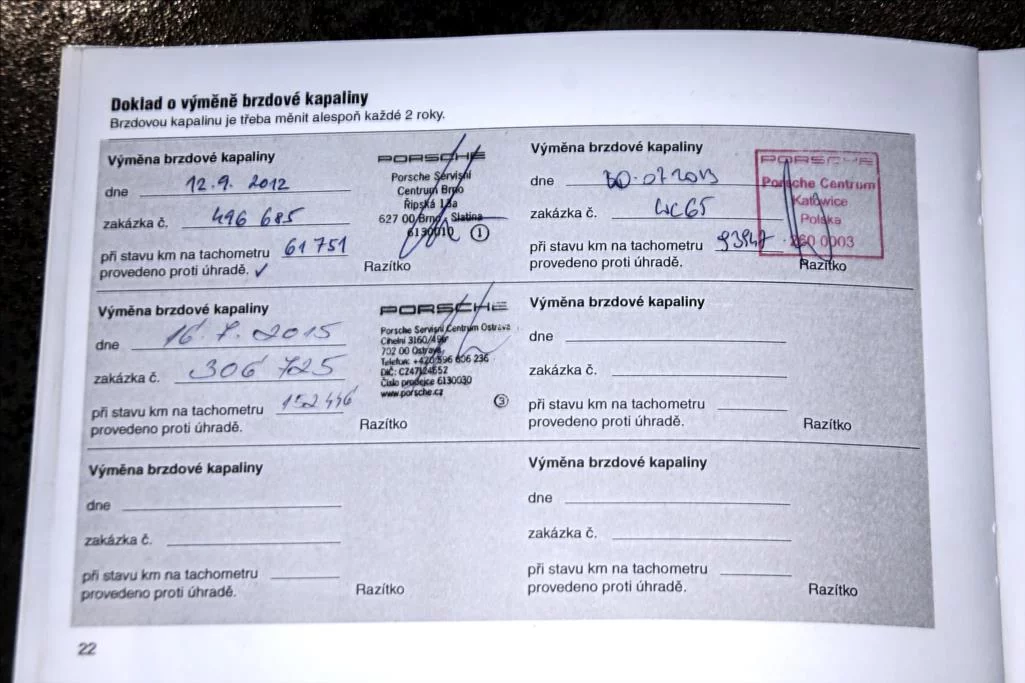 Doklad o výměně brzdové kapaliny
Brzdovou kapalinu je třeba měnit alespoň každé 2 roky.
Výměna brzdové kapaliny
dne 12.9. 2012
zakázka č. 496 685
při stavu km na tachometru 61 751
provedeno proti úhradě. ✓
PORSCHE
Porsche Servisní
Centrum Brno
Řipská 13a
627 00 Brno, Slatina
6130010 1
Razítko
Výměna brzdové kapaliny
dne 07 2013
zakázka č.
při stavu km na tachometru
provedeno proti úhradě.
PORSCHE
Porsche Centrum
Katowice
Polska
260 0003
Razítko
Výměna brzdové kapaliny
dne 16. 7. 2015
zakázka č. 306 725
při stavu km na tachometru 152 446
provedeno proti úhradě.
PORSCHE
Porsche Servisní Centrum Ostrava
Cihelní 3160/49b
702 00 Ostrava
Telefon: +420 596 606 236
DIČ: CZ47124652
Číslo prodejce 6130030
www.porsche.cz
3
Razítko
Výměna brzdové kapaliny
dne
zakázka č.
při stavu km na tachometru
provedeno proti úhradě.
Razítko
Výměna brzdové kapaliny
dne
zakázka č.
při stavu km na tachometru
provedeno proti úhradě.
Razítko
Výměna brzdové kapaliny
dne
zakázka č.
při stavu km na tachometru
provedeno proti úhradě.
Razítko
22